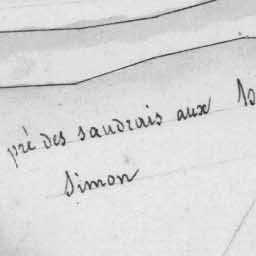 pré des saudrais aux
Simon